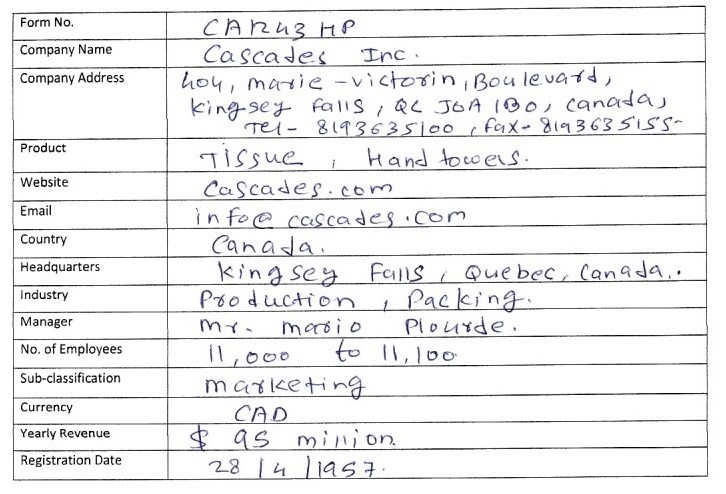 Form No. CAR43 HP
Company Name Cascades Inc.
Company Address 404, marie-victorin, Boulevard,
Kingsey Falls, QC J0A 1B0, Canada,
Tel- 8193635100, fax- 8193635155-
Product Tissue, Hand towels.
Website Cascades.com
Email info@cascades.com
Country Canada.
Headquarters Kingsey Falls, Quebec, Canada..
Industry Production, Packing.
Manager Mr. Mario Plourde.
No. of Employees 11,000 to 11,100
Sub-classification marketing
Currency CAD
Yearly Revenue $ 95 million
Registration Date 28/4/1957.